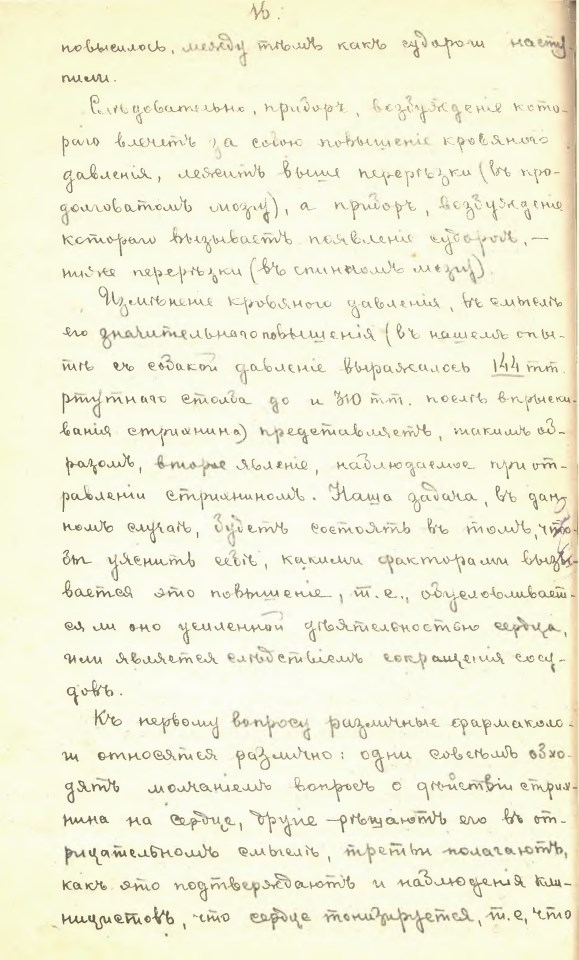 16.
повысилось, между тѣмъ какъ судороги насту-
пили.
Слѣдовательно, приборъ, возбужденіе кото-
раго влечетъ за собою повышеніе кровяного
давленія, лежитъ выше перерѣзки (въ про-
долговатомъ мозгу), а приборъ, возбужденіе
котораго вызываетъ появленіе судорогъ, —
ниже перерѣзки (въ спинномъ мозгу).
Измѣненіе кровяного давленія, въ смыслѣ
его значительнаго повышенія (въ нашемъ опы-
тѣ съ собакой давленіе выражалось 144 mm.
ртутнаго столба до и 310 mm. послѣ впрыски-
ванія стрихнина) представляетъ, такимъ об-
разомъ, второе явленіе, наблюдаемое при от-
равленіи стрихниномъ. Наша задача, въ дан-
номъ случаѣ, будетъ состоять въ томъ, что-
бы уяснить себѣ, какими факторами вызы-
вается это повышеніе, т.е., обусловливает-
ся ли оно усиленной дѣятельностью сердца,
или является слѣдствіемъ сокращенія сосу-
довъ.
Къ первому вопросу различные фармаколо-
ги относятся различно: одни совсѣмъ обхо-
дятъ молчаніемъ вопросъ о дѣйствіи стрих-
нина на сердце, другіе рѣшаютъ его въ от-
рицательномъ смыслѣ, третьи полагаютъ,
какъ это подтверждаютъ и наблюденія кли-
ницистовъ, что сердце тонизируется, т.е, что